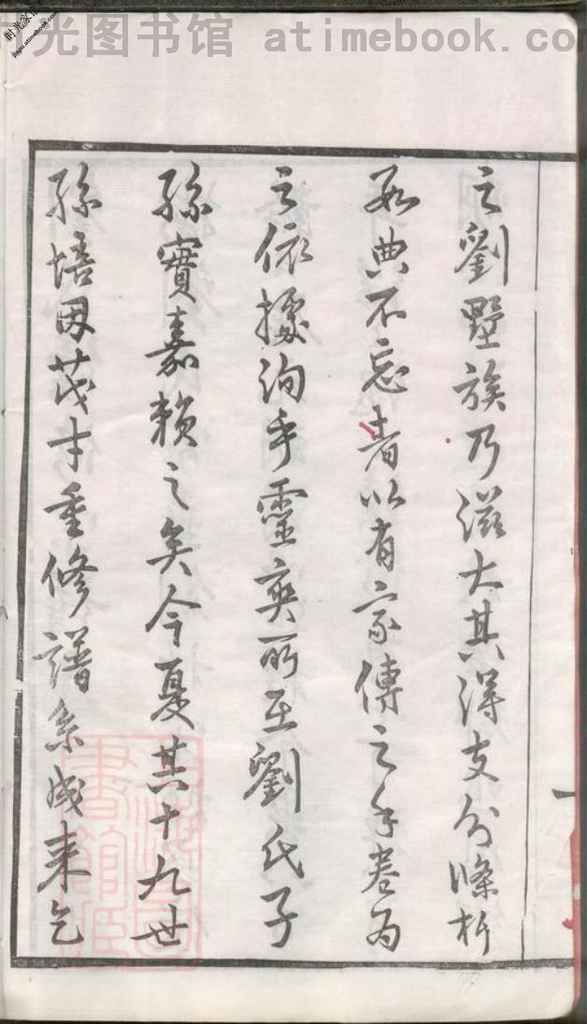 时光图书馆 atimebook.co
之劉墅族乃滋大其得支分條析
數典不忘者以有家傳之手卷為
之依據洵乎靈爽所在劉氏子
孫實嘉賴之矣今夏其十九世
孫培因茂才重修譜系成來乞